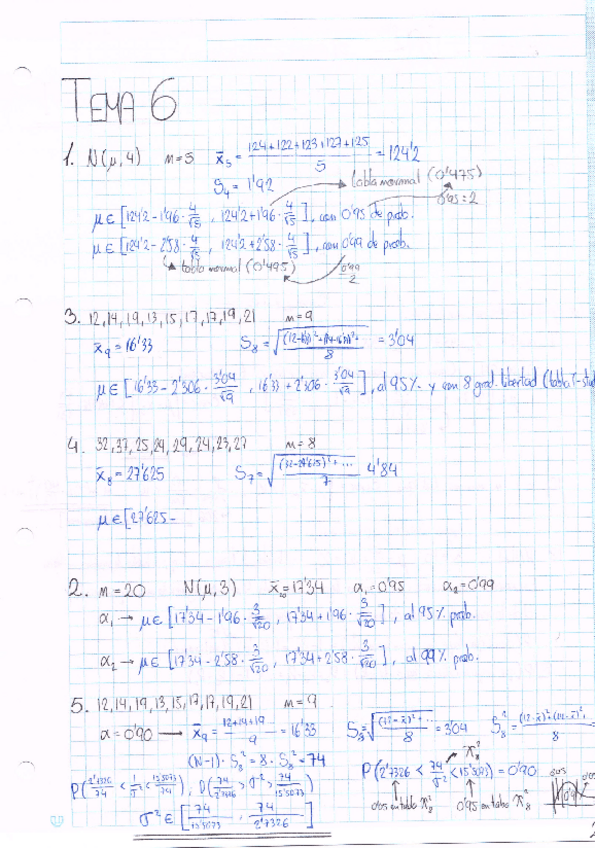 TEMA 6
1. N(μ,4) n=5 x̄₅ = (124+122+123+127+125)/5 = 124'2
S₄ = 1'92 tabla normal (0'475)
0'95 : 2
μ ∈ [124'2 - 1'96 · 4/√5 , 124'2 + 1'96 · 4/√5], con 0'95 de prob.
μ ∈ [124'2 - 2'58 · 4/√5 , 124'2 + 2'58 · 4/√5], con 0'99 de prob.
tabla normal (0'495) 0'99/2
3. 12, 14, 19, 13, 15, 17, 17, 19, 21 n=9
x̄₉ = 16'33 S₈ = √((12-16'33)²+(14-16'33)²+/8) = 3'04
μ ∈ [16'33 - 2'306 · 3'04/√9 , 16'33 + 2'306 · 3'04/√9], al 95% y con 8 grad. libertad (tabla T-stud
4. 32, 37, 25, 29, 24, 23, 27 n=8
x̄₈ = 27'625 S₇ = √((32-27'625)²+.../7) 4'84
μ ∈ [27'625 -
2. n=20 N(μ,3) x̄₂₀ = 17'34 α₁ = 0'95 α₂ = 0'99
α₁ → μ ∈ [17'34 - 1'96 · 3/√20 , 17'34 + 1'96 · 3/√20], al 95% prob.
α₂ → μ ∈ [17'34 - 2'58 · 3/√20 , 17'34 + 2'58 · 3/√20], al 99% prob.
5. 12, 14, 19, 13, 15, 17, 17, 19, 21 n=9
α = 0'90 → x̄₉ = 12+14+19/9 = 16'33 S₈ = √((12-x̄)²+.../8) = 3'04 S₈² = (12-x̄)²+(14-x̄)²+/8
(N-1) · S₈² = 8 · S₈² = 74
P(2'7326 < 74/σ² < 15'5073) = 0'90
P(2'7326/74 < 1/σ² < 15'5073/74), P(74/2'7326 > σ² > 74/15'5073)
0'05 en tabla χ₈² 0'95 en tabla χ₈²
σ² ∈ [74/15'5073 , 74/2'7326]